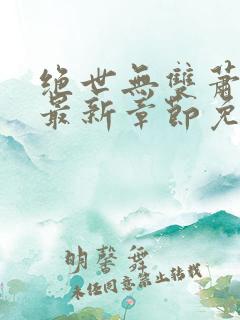 絕世無雙蕭
最新章節免
明馨舞
未經同意禁止轉載